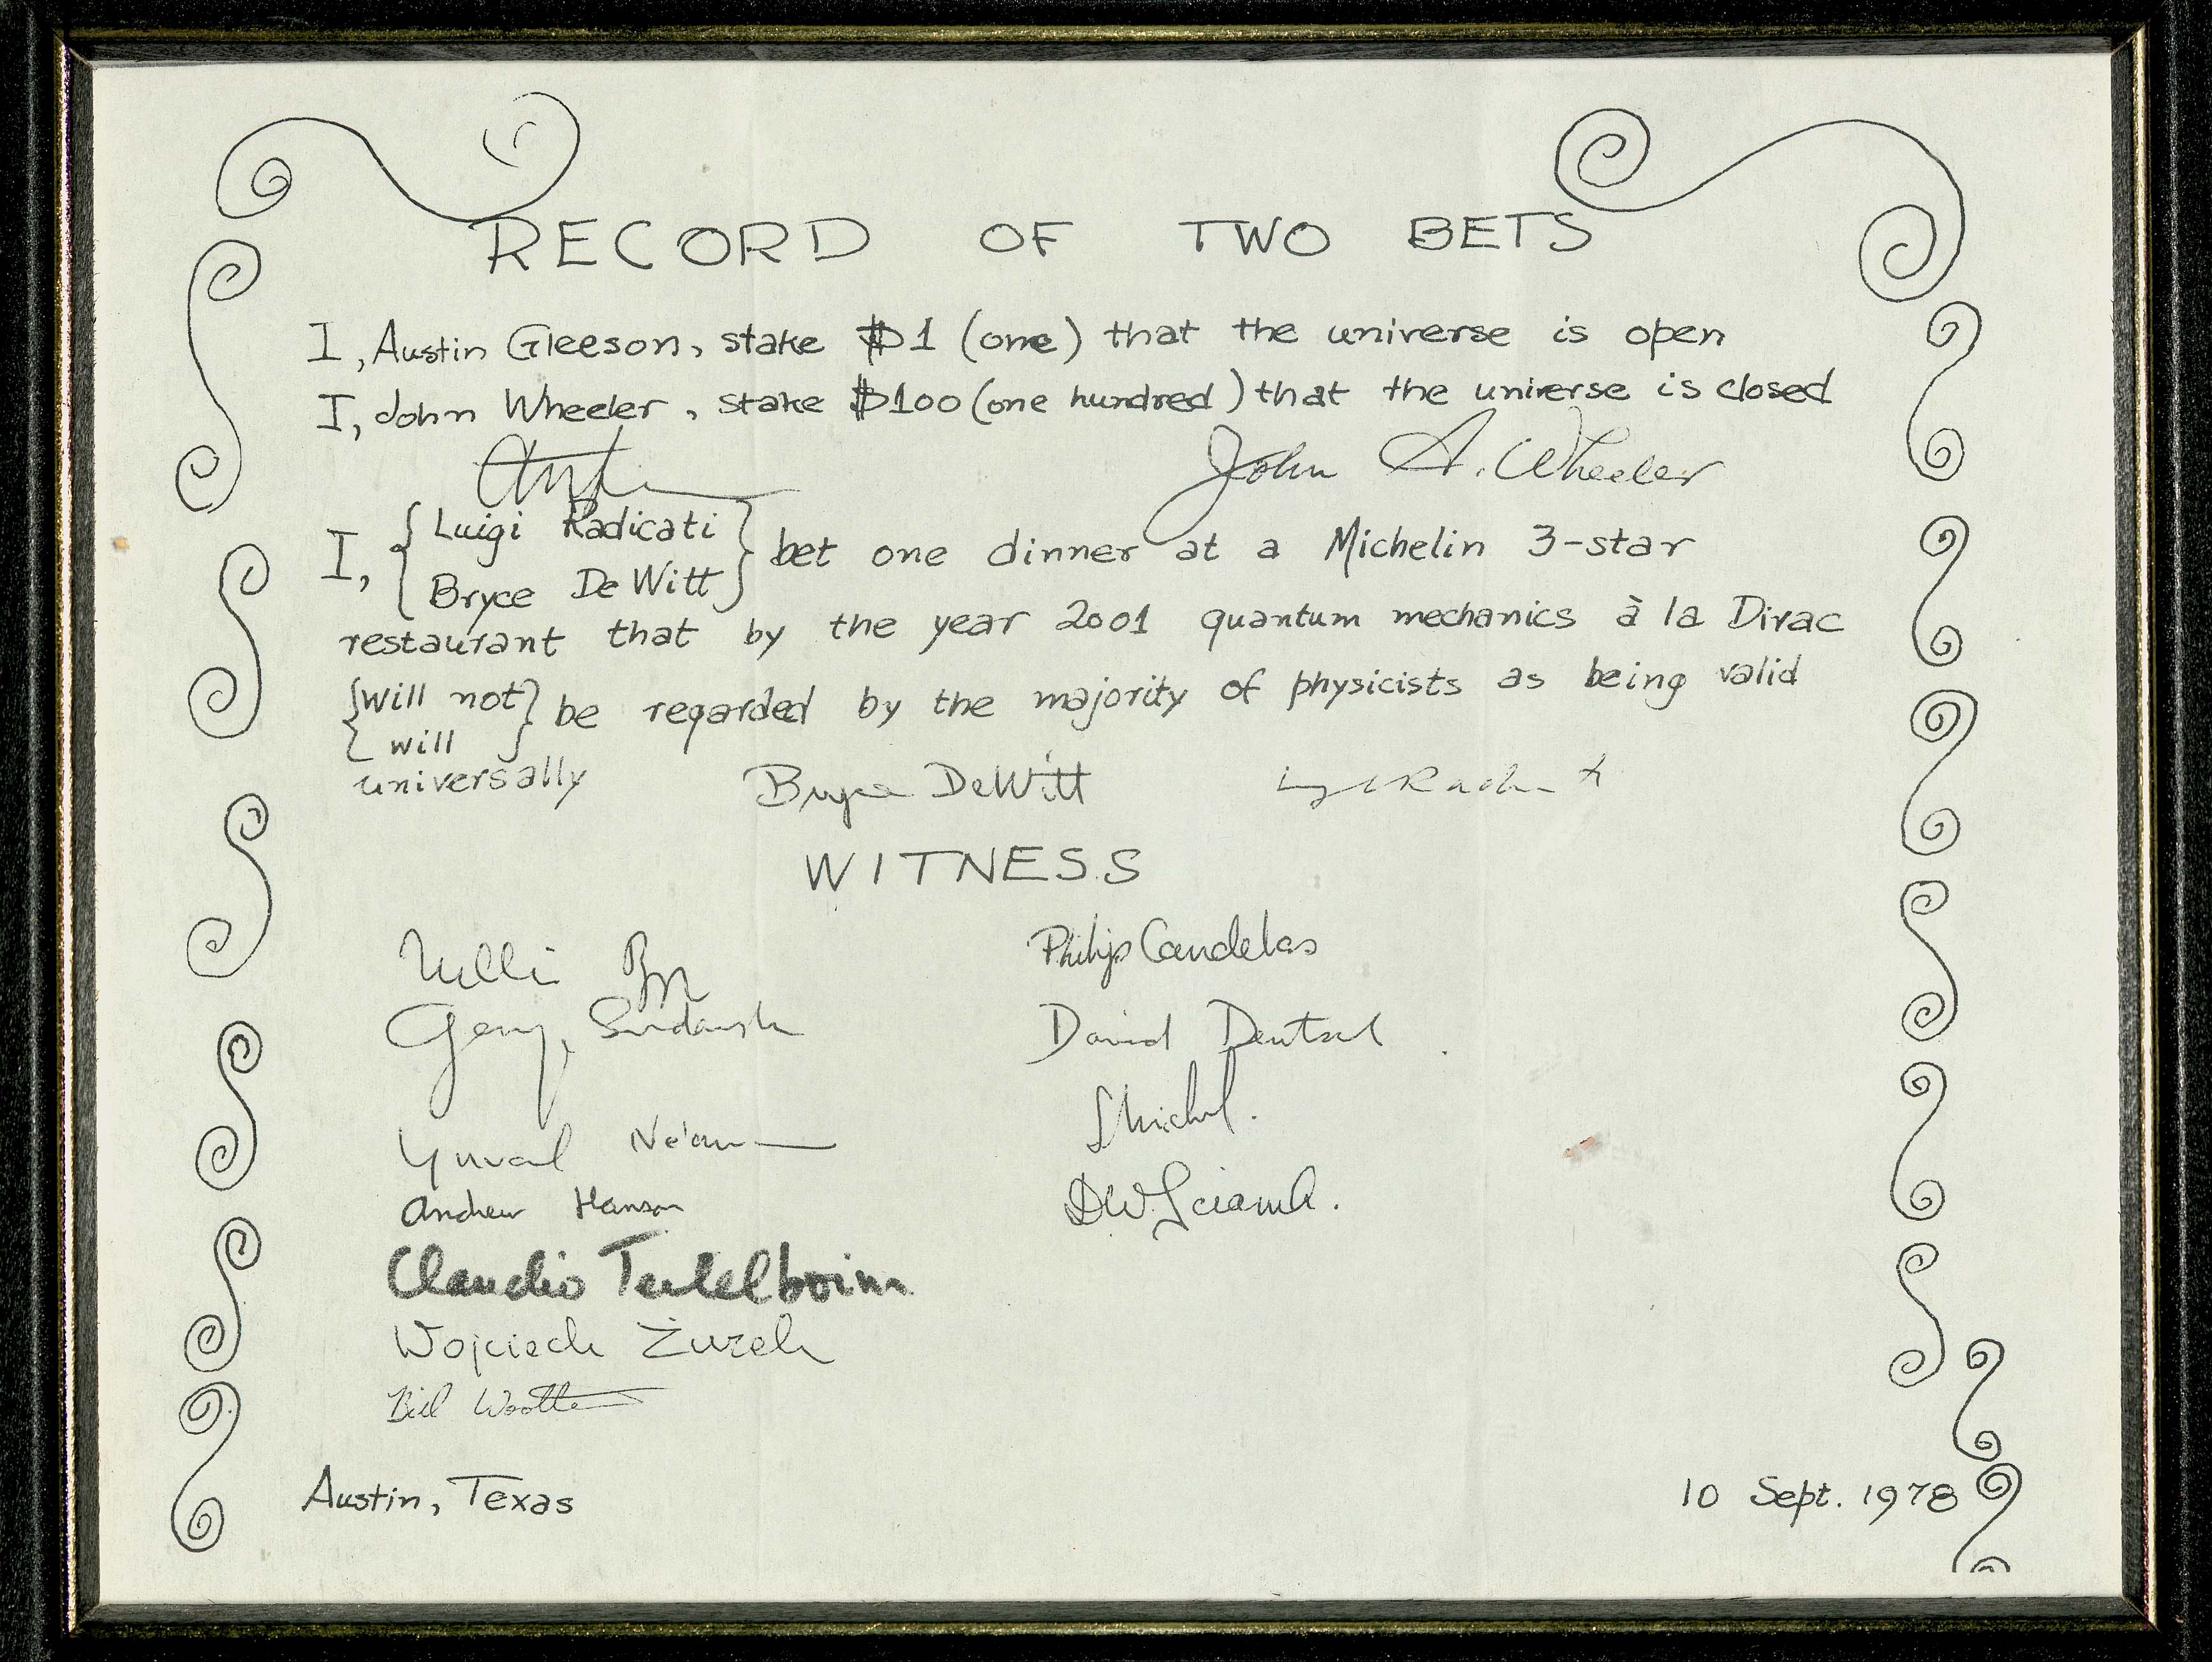 RECORD OF TWO BETS
I, Austin Gleeson, stake $1 (one) that the universe is open
I, John Wheeler, stake $100 (one hundred) that the universe is closed
John A. Wheeler
I, { Luigi Radicati
Bryce DeWitt } bet one dinner at a Michelin 3-star
restaurant that by the year 2001 quantum mechanics à la Dirac
{will not
will} be regarded by the majority of physicists as being valid
universally
Bryce DeWitt
WITNESS
Philip Candelas
David Deutsch
L Michel.
DW Sciama.
Yuval Ne'eman
Andrew Hanson
Claudio Teitelboim
Wojciech Żurek
Bill Wootters
Austin, Texas
10 Sept. 1978